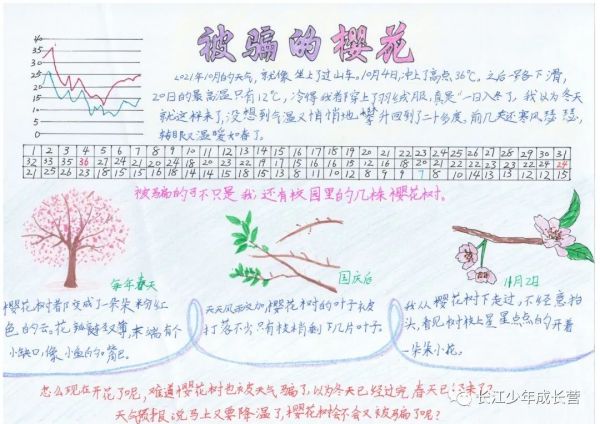 被骗的樱花
40
35
30
25
20
15
10
5
0
2021年10月的天气，就像坐上了过山车。10月4日冲上了高点36℃，之后一路下滑，
20日的最高温只有12℃，冷得我都穿上了羽绒服，真是"一日入冬了，我以为冬天
就这样来了，没想到气温又悄悄地攀升回到了二十多度。前几天还寒风瑟瑟，
转眼又温暖如春了。
1 2 3 4 5 6 7 8 9 10 11 12 13 14 15 16 17 18 19 20 21 22 23 24 25 26 27 28 29 30 31
被骗的可不只是我，还有校园里的几株樱花树。
每年春天
樱花树都变成了一朵朵粉红
色的云。花瓣
小缺口，像小鱼的尾巴。
国庆后
天天风雨交加，樱花树的叶子被
打落不少，只有枝梢剩下几片叶子。
11月2日
我从樱花树下走过，不经意抬
头，看见树枝上星星点点的开着
一朵朵小花。
怎么现在开花了呢，难道樱花树也被天气骗了，以为冬天已经过完，春天已经来了？
天气预报说马上又要降温了，樱花树会不会又被骗了呢？
长江少年成长营